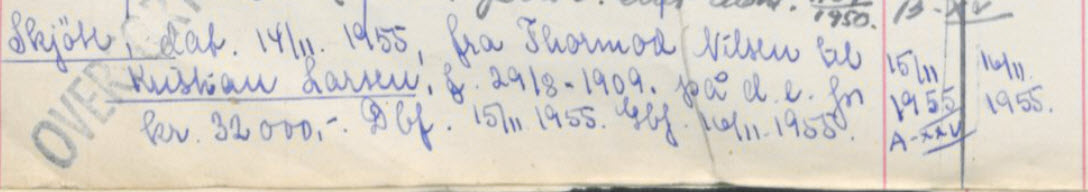 1950. B-XV
Skjöte, dat. 14/11. 1955, fra Thormod Nilsen til 15/11 16/11
Kristian Larsen, f. 29/8-1909. på d. e. for 1955 1955.
kr. 32 000,-. Dbf. 15/11 1955. Gbf. 16/11-1955. A-XXV
OVER